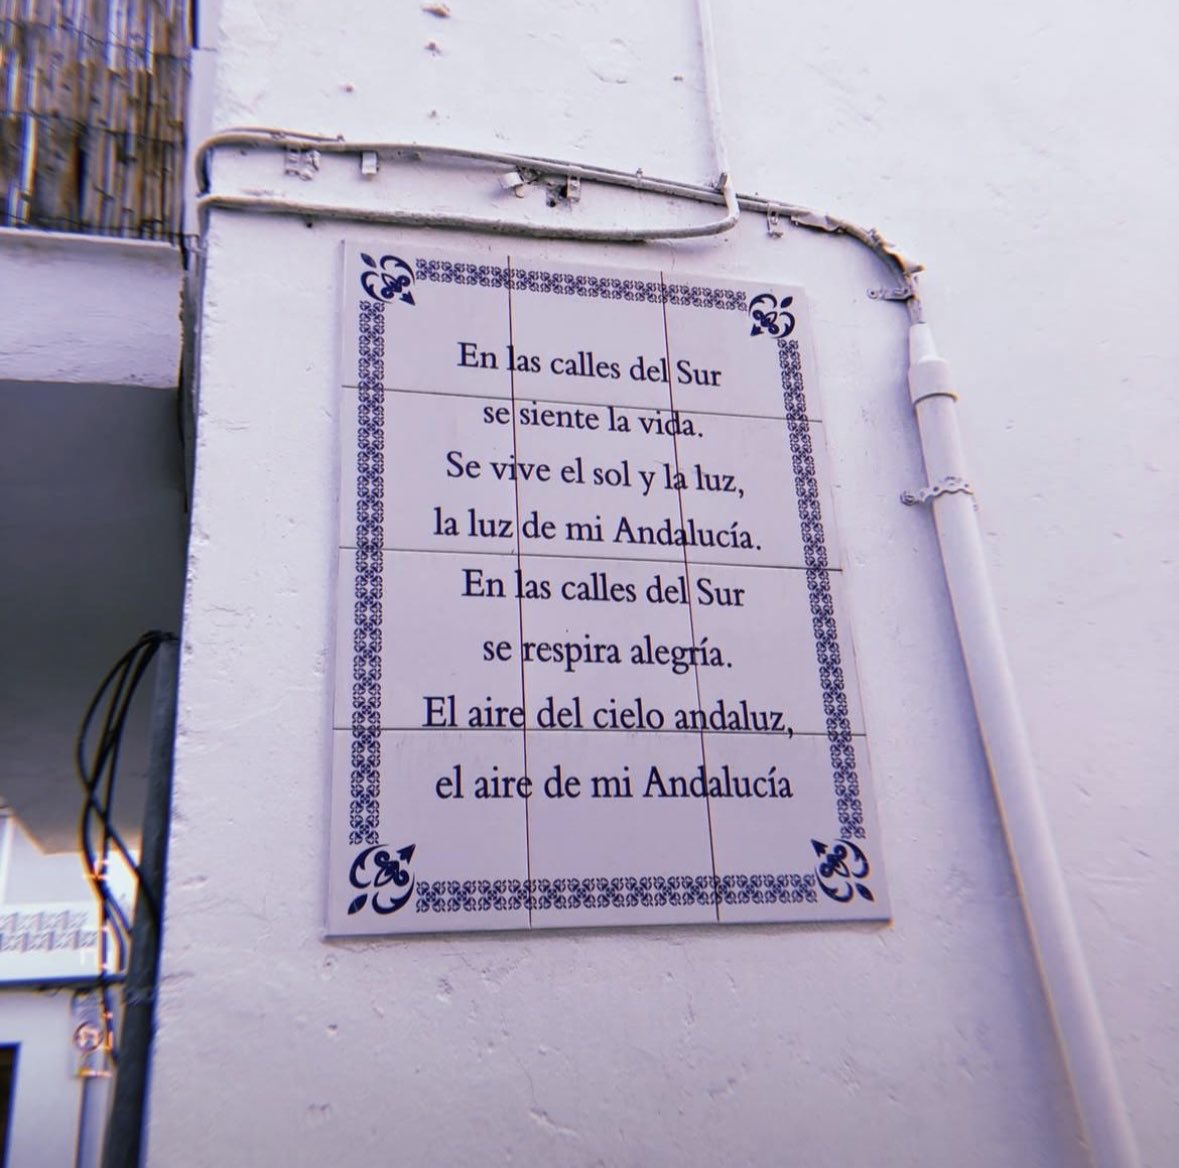 En las calles del Sur
se siente la vida.
Se vive el sol y la luz,
la luz de mi Andalucía.
En las calles del Sur
se respira alegría.
El aire del cielo andaluz,
el aire de mi Andalucía